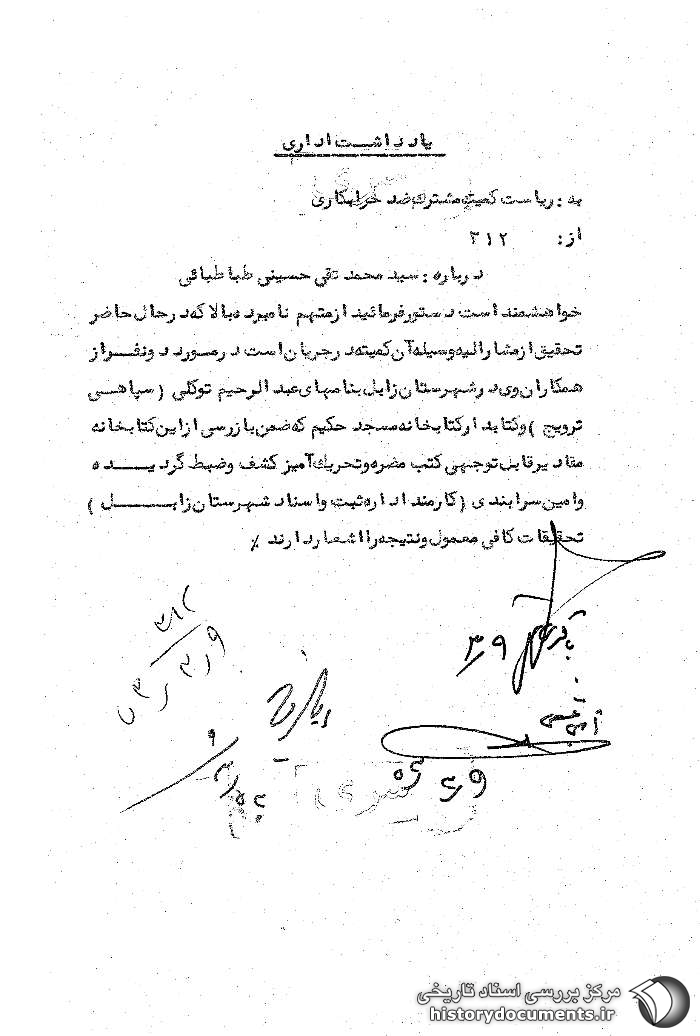 یادداشت اداری
به : ریاست کمیته مشترک ضد خرابکاری
از : ۳۱۲
درباره : سید محمد تقی حسینی طباطبائی
خواهشمند است دستور فرمائید از متهم نامبرده بالا که در حال حاضر
تحقیق از مشارالیه وسیله آن کمیته در جریان است در مورد دو نفر از
همکاران وی در شهرستان زابل بنامهای عبدالرحیم توکلی ( سپاهی
ترویج ) و کتابدار کتابخانه مسجد حکیم که ضمن بازرسی از این کتابخانه
مقادیر قابل توجهی کتب مضره و تحریک آمیز کشف و ضبط گردیده
و امین سرابندی ( کارمند اداره ثبت و اسناد شهرستان زابل )
تحقیقات کافی معمول و نتیجه را اشعار دارند ٪
۳۱۲
مرکز بررسی اسناد تاریخی
historydocuments.ir